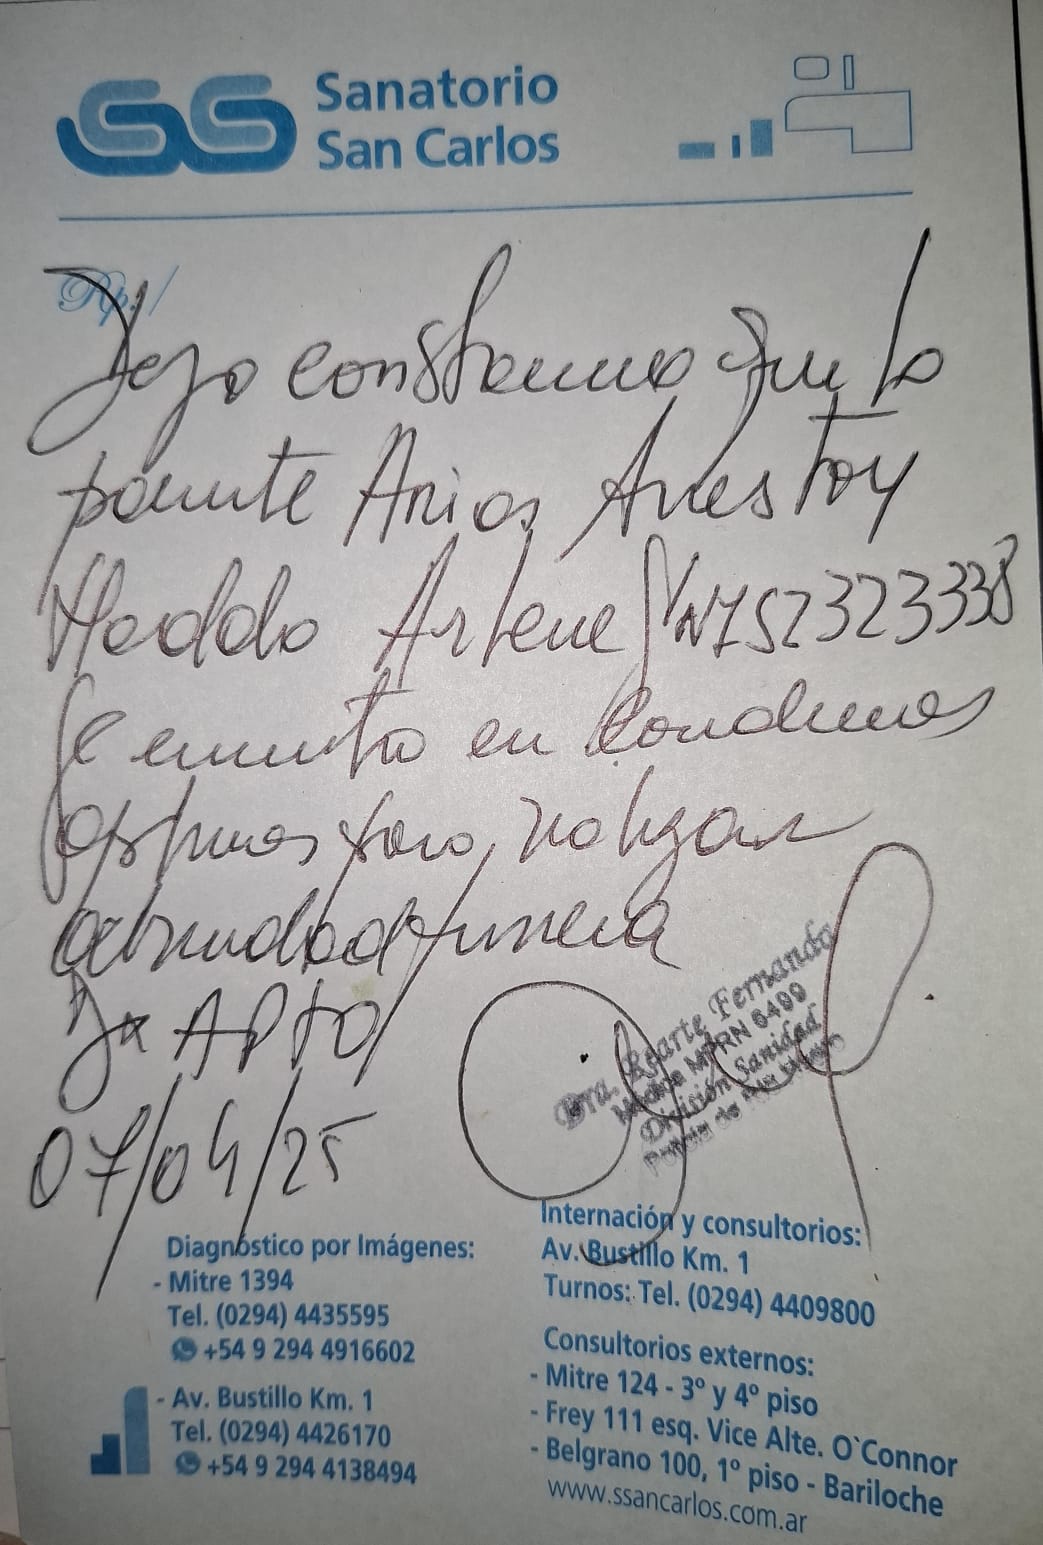 Sanatorio
San Carlos
Rp./
Dejo constancia que la
paciente Arios
Arlene DNI 52323338
Se encuentra en condiciones
optimas para realizar
actividad fisica
Dx APTO
07/04/25
Dra. Fernanda
MPRN 6499
División Sanidad
Diagnóstico por Imágenes:
- Mitre 1394
Tel. (0294) 4435595
+54 9 294 4916602
- Av. Bustillo Km. 1
Tel. (0294) 4426170
+54 9 294 4138494
Internación y consultorios:
Av. Bustillo Km. 1
Turnos: Tel. (0294) 4409800
Consultorios externos:
- Mitre 124 - 3º y 4º piso
- Frey 111 esq. Vice Alte. O`Connor
- Belgrano 100, 1º piso - Bariloche
www.ssancarlos.com.ar